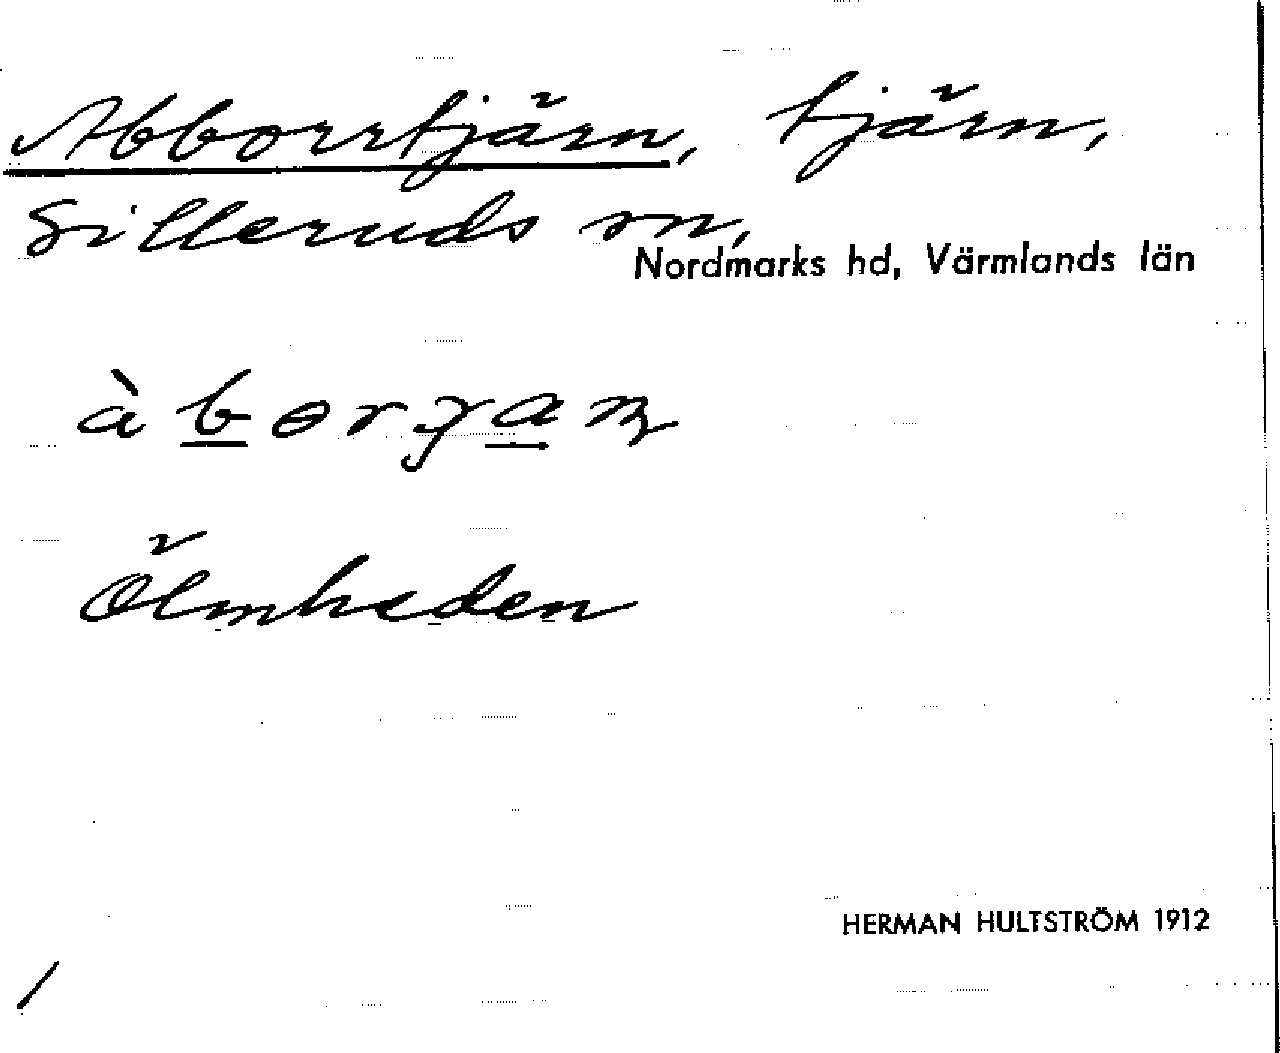 Abborrtjärn, tjärn,
Silleruds sn,
Nordmarks hd, Värmlands län
Ölmheden
HERMAN HULTSTRÖM 1912
/